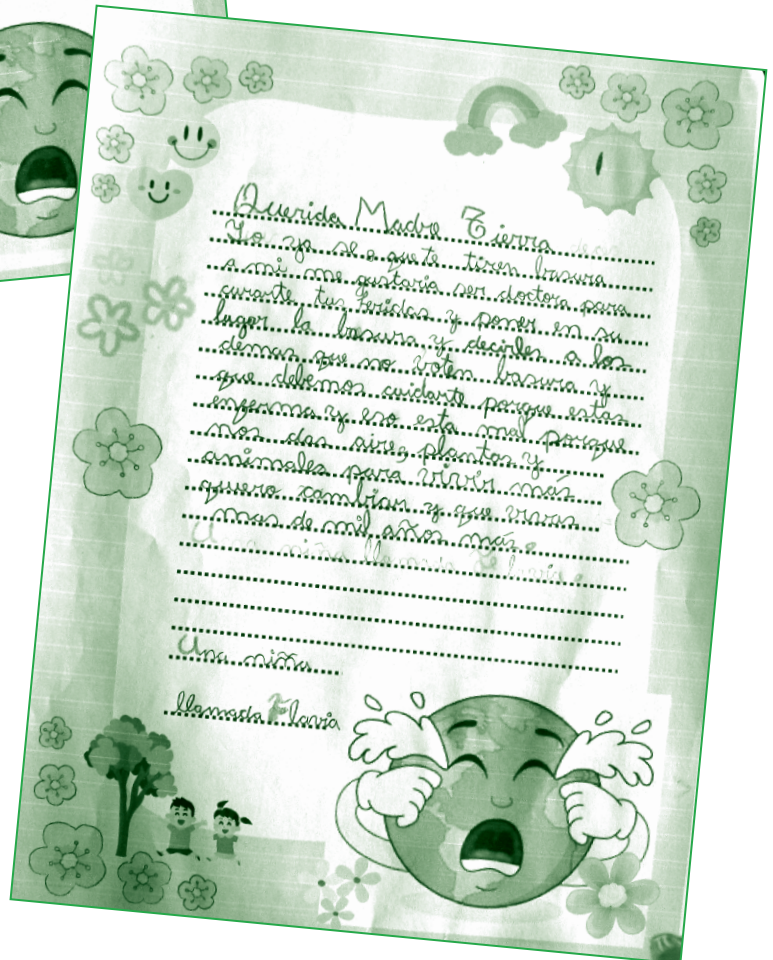 Querida Madre Tierra
Yo ya se o que te tiren basura
a mi me gustaria ser doctora para
curarte tus feridas y poner en su
lugar la basura y decirles a los
demas que no voten basura y
que debemos cuidarte porque estas
enferma y eso esta mal porque
nos das aire, plantas y
animales para vivir más
quiero cambiar y que vivas
mas de mil años más.
Una niña llamada Flavia.
Una niña
llamada Flavia